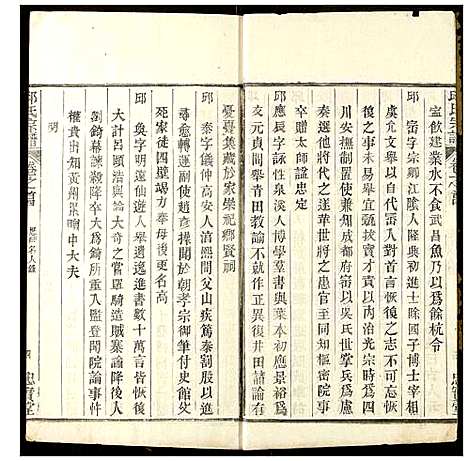 邱氏宗譜
寧飲建業水不食武昌魚乃以爲餘杭令
邱 崈字宗卿江陰人隆典元年進士除國子博士宰相
虞允文舉以自代甯入對首言恢復之志不可忘恢
復之事宜以漸擢實才責以內治光宗時爲四
川安撫制置使兼知成都府崈以吳氏世掌兵爲慮
奏選他將代之遂革世將之患官至同知樞密院事
贈太師諡忠定
邱應辰字 詠性泉溪人博學羣書與葉本初應景裕爲
友元貞間舉青田教諭以不合正異復井田諸論有
憂憂集藏於家崇祀鄉賢祠
邱 泰字儀仲高安人淳熙間父山疾篤泰割股以進
尋愈轉運副使趙彥操聞於朝孝宗御筆付史館及
死家徒四壁竭力奉母後更名高
邱 奐字明遠仙遊人舉進士進書數十萬言皆恢復
大計呂頤浩與論大奇之嘗單騎造賊寨諭降後入
劉錡幕諫殺降卒大爲錡所重入監登聞院論事忤
權貴出知黃州累晴中大夫
明
邱氏宗譜
歷代名人錄
四
忠實堂